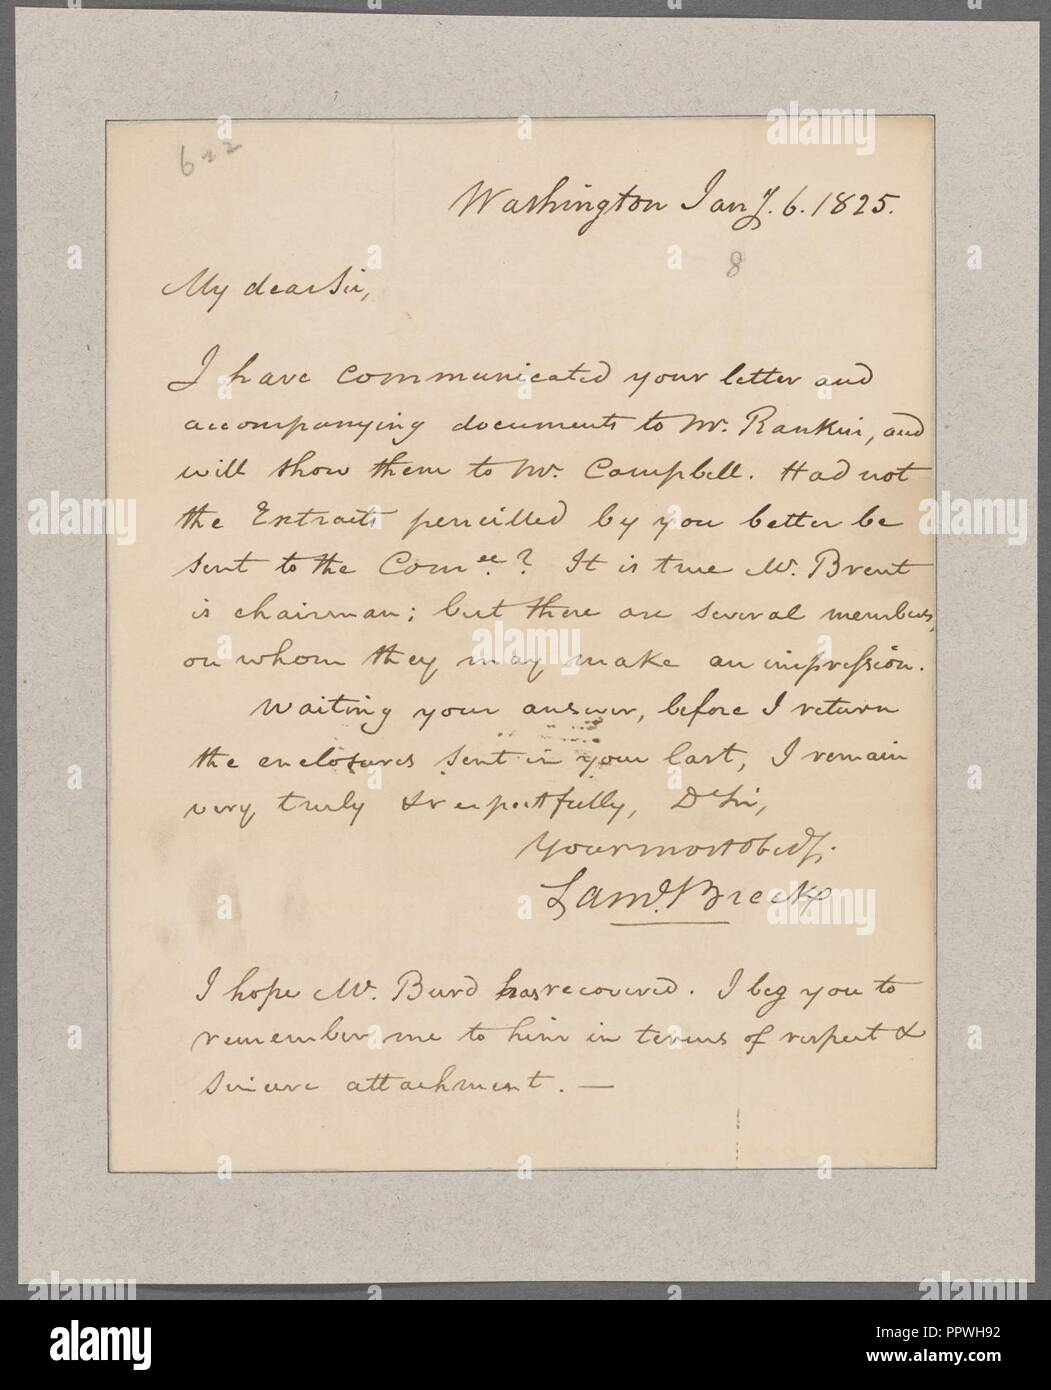 622
Washington Jany. 6. 1825.
8
My dear Sir,
I have communicated your letter and
accompanying documents to Mr. Rankin, and
will show them to Mr. Campbell. Had not
the Extracts pencilled by you better be
sent to the Comee.? It is true Mr. Brent
is chairman; but there are several members,
on whom they may make an impression.
Waiting your answer, before I return
the enclosures sent in your last, I remain
very truly & respectfully, Dr Sir,
Your most obedt.
Saml. Breck
I hope Mr. Burd has recovered. I beg you to
remember me to him in terms of respect &
sincere attachment. —
alamy
Image ID: PPWH92
www.alamy.com